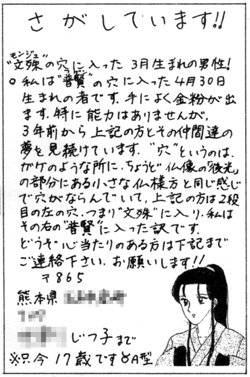 さがしています!!
モンジュ
"文殊"の穴に入った 3月生まれの男性!
○私は"普賢"の穴に入った4月30日
生まれの者です。手によく金粉が出
ます。特に能力はありませんが、
3年前から上記の方とその仲間達の
夢を見続けています。"穴"というのは、
ガケのような所に、ちょうど仏像の"後光"
の部分にある小さな仏様方と同じ感じ
で穴がならんでいて、上記の方は2段
目の左の穴、つまり"文殊"に入り、私は
その右の"普賢"に入った訳です。
どうぞ心当たりのある方は下記まで
ご連絡下さい。お願いします!!
〒865
熊本県
じつ子まで
※只今17歳です♉A型